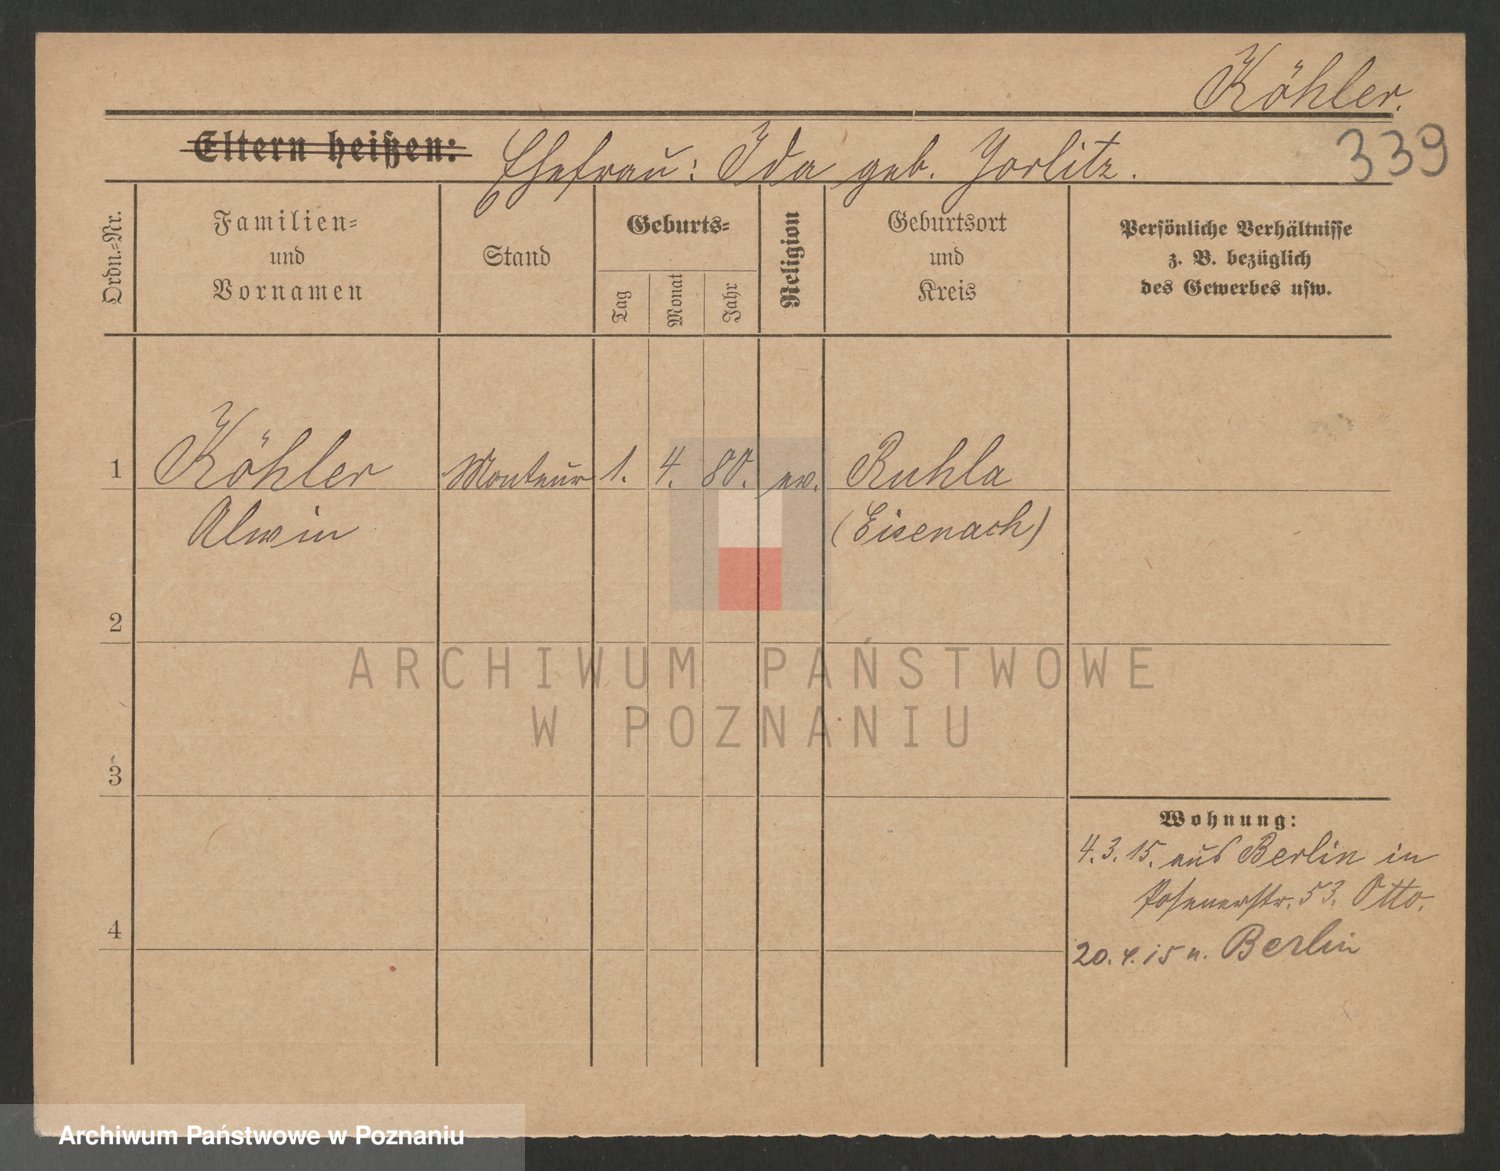 Köhler.
339
Eltern heißen: Ehefrau: Ida geb. Jorlitz.
Ordn.-Nr.
Familien-
und
Vornamen
Stand
Geburts-
Tag
Monat
Jahr
Religion
Geburtsort
und
Kreis
Persönliche Verhältnisse
z. B. bezüglich
des Gewerbes usw.
1 Köhler Monteur 1. 4. 80. ev. Ruhla
Alwin (Eisenach)
2
ARCHIWUM PAŃSTWOWE
W POZNANIU
3
Wohnung:
4.3.15. aus Berlin in
Posenerstr. 53. Otto.
4
20.4.15 n. Berlin
Archiwum Państwowe w Poznaniu